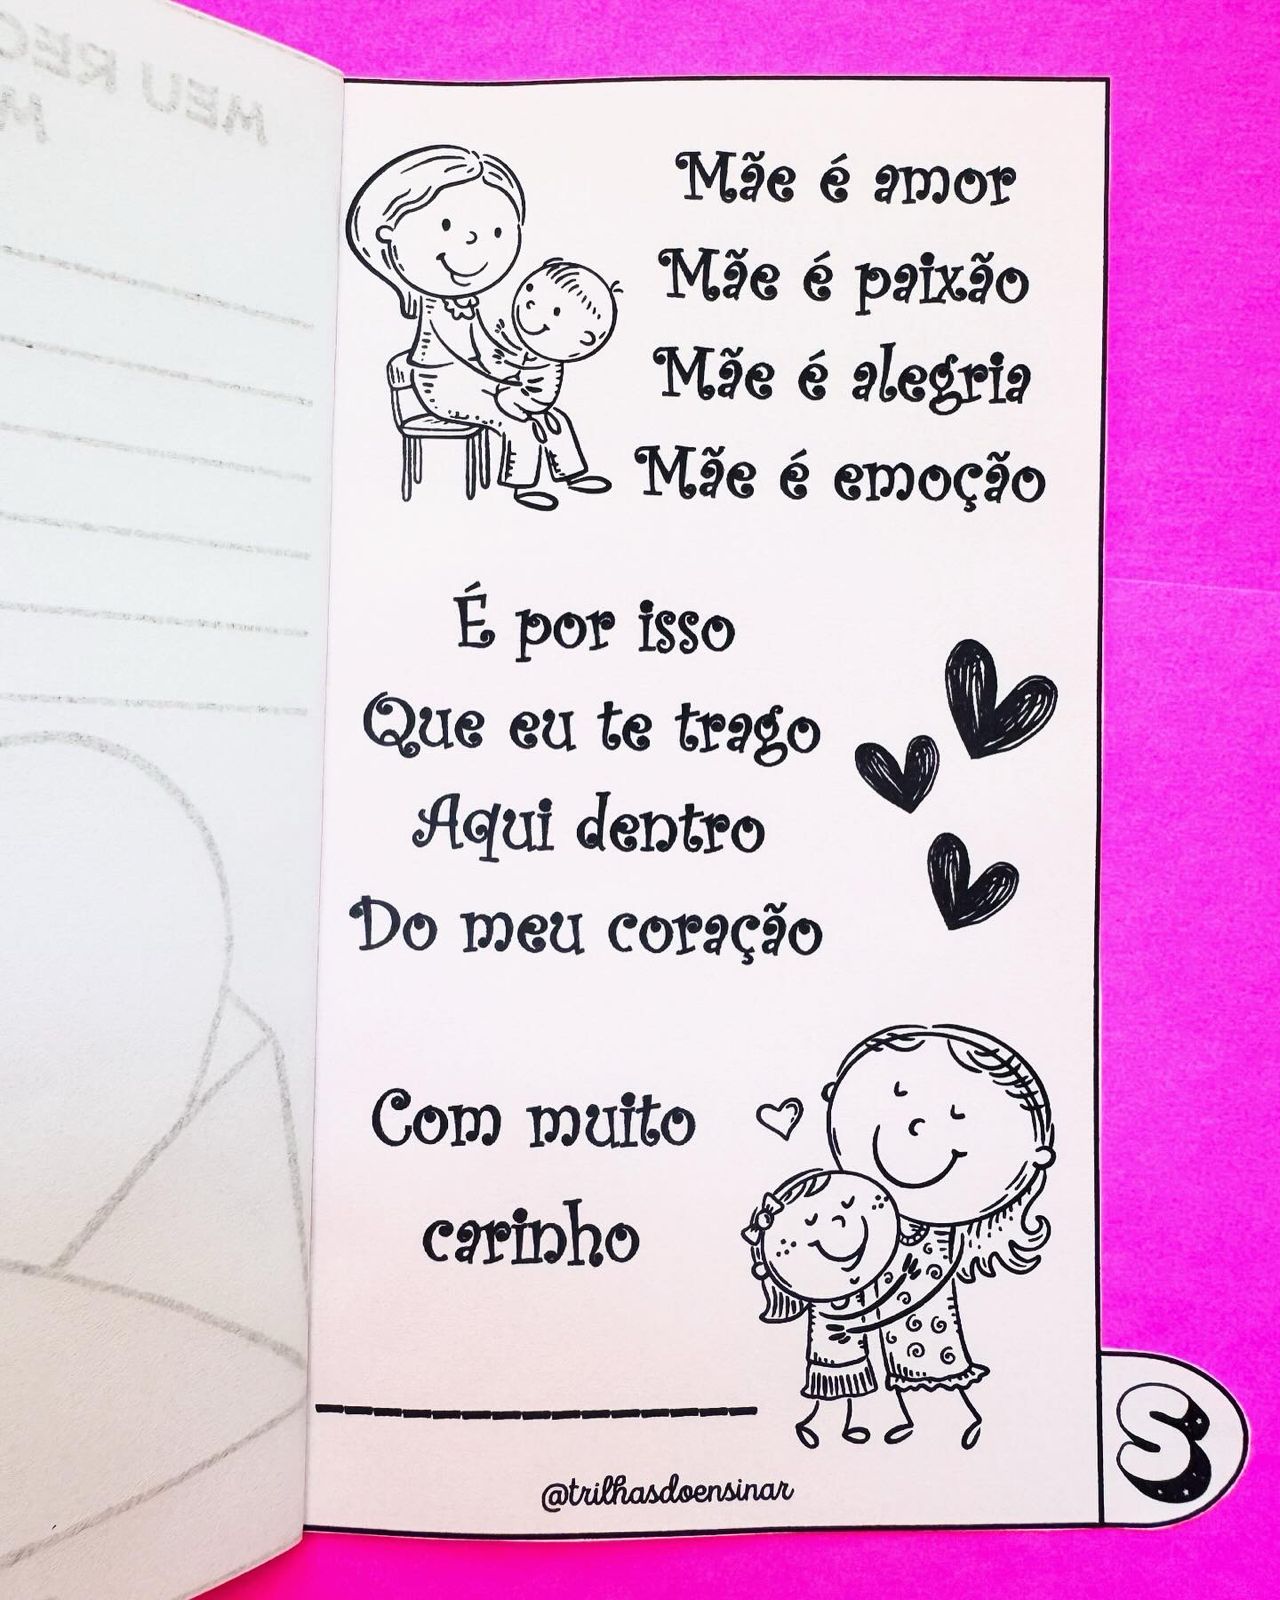 MEU REC
M
Mãe é amor
Mãe é paixão
Mãe é alegria
Mãe é emoção
É por isso
Que eu te trago
Aqui dentro
Do meu coração
Com muito
carinho
@trilhasdoensinar
S